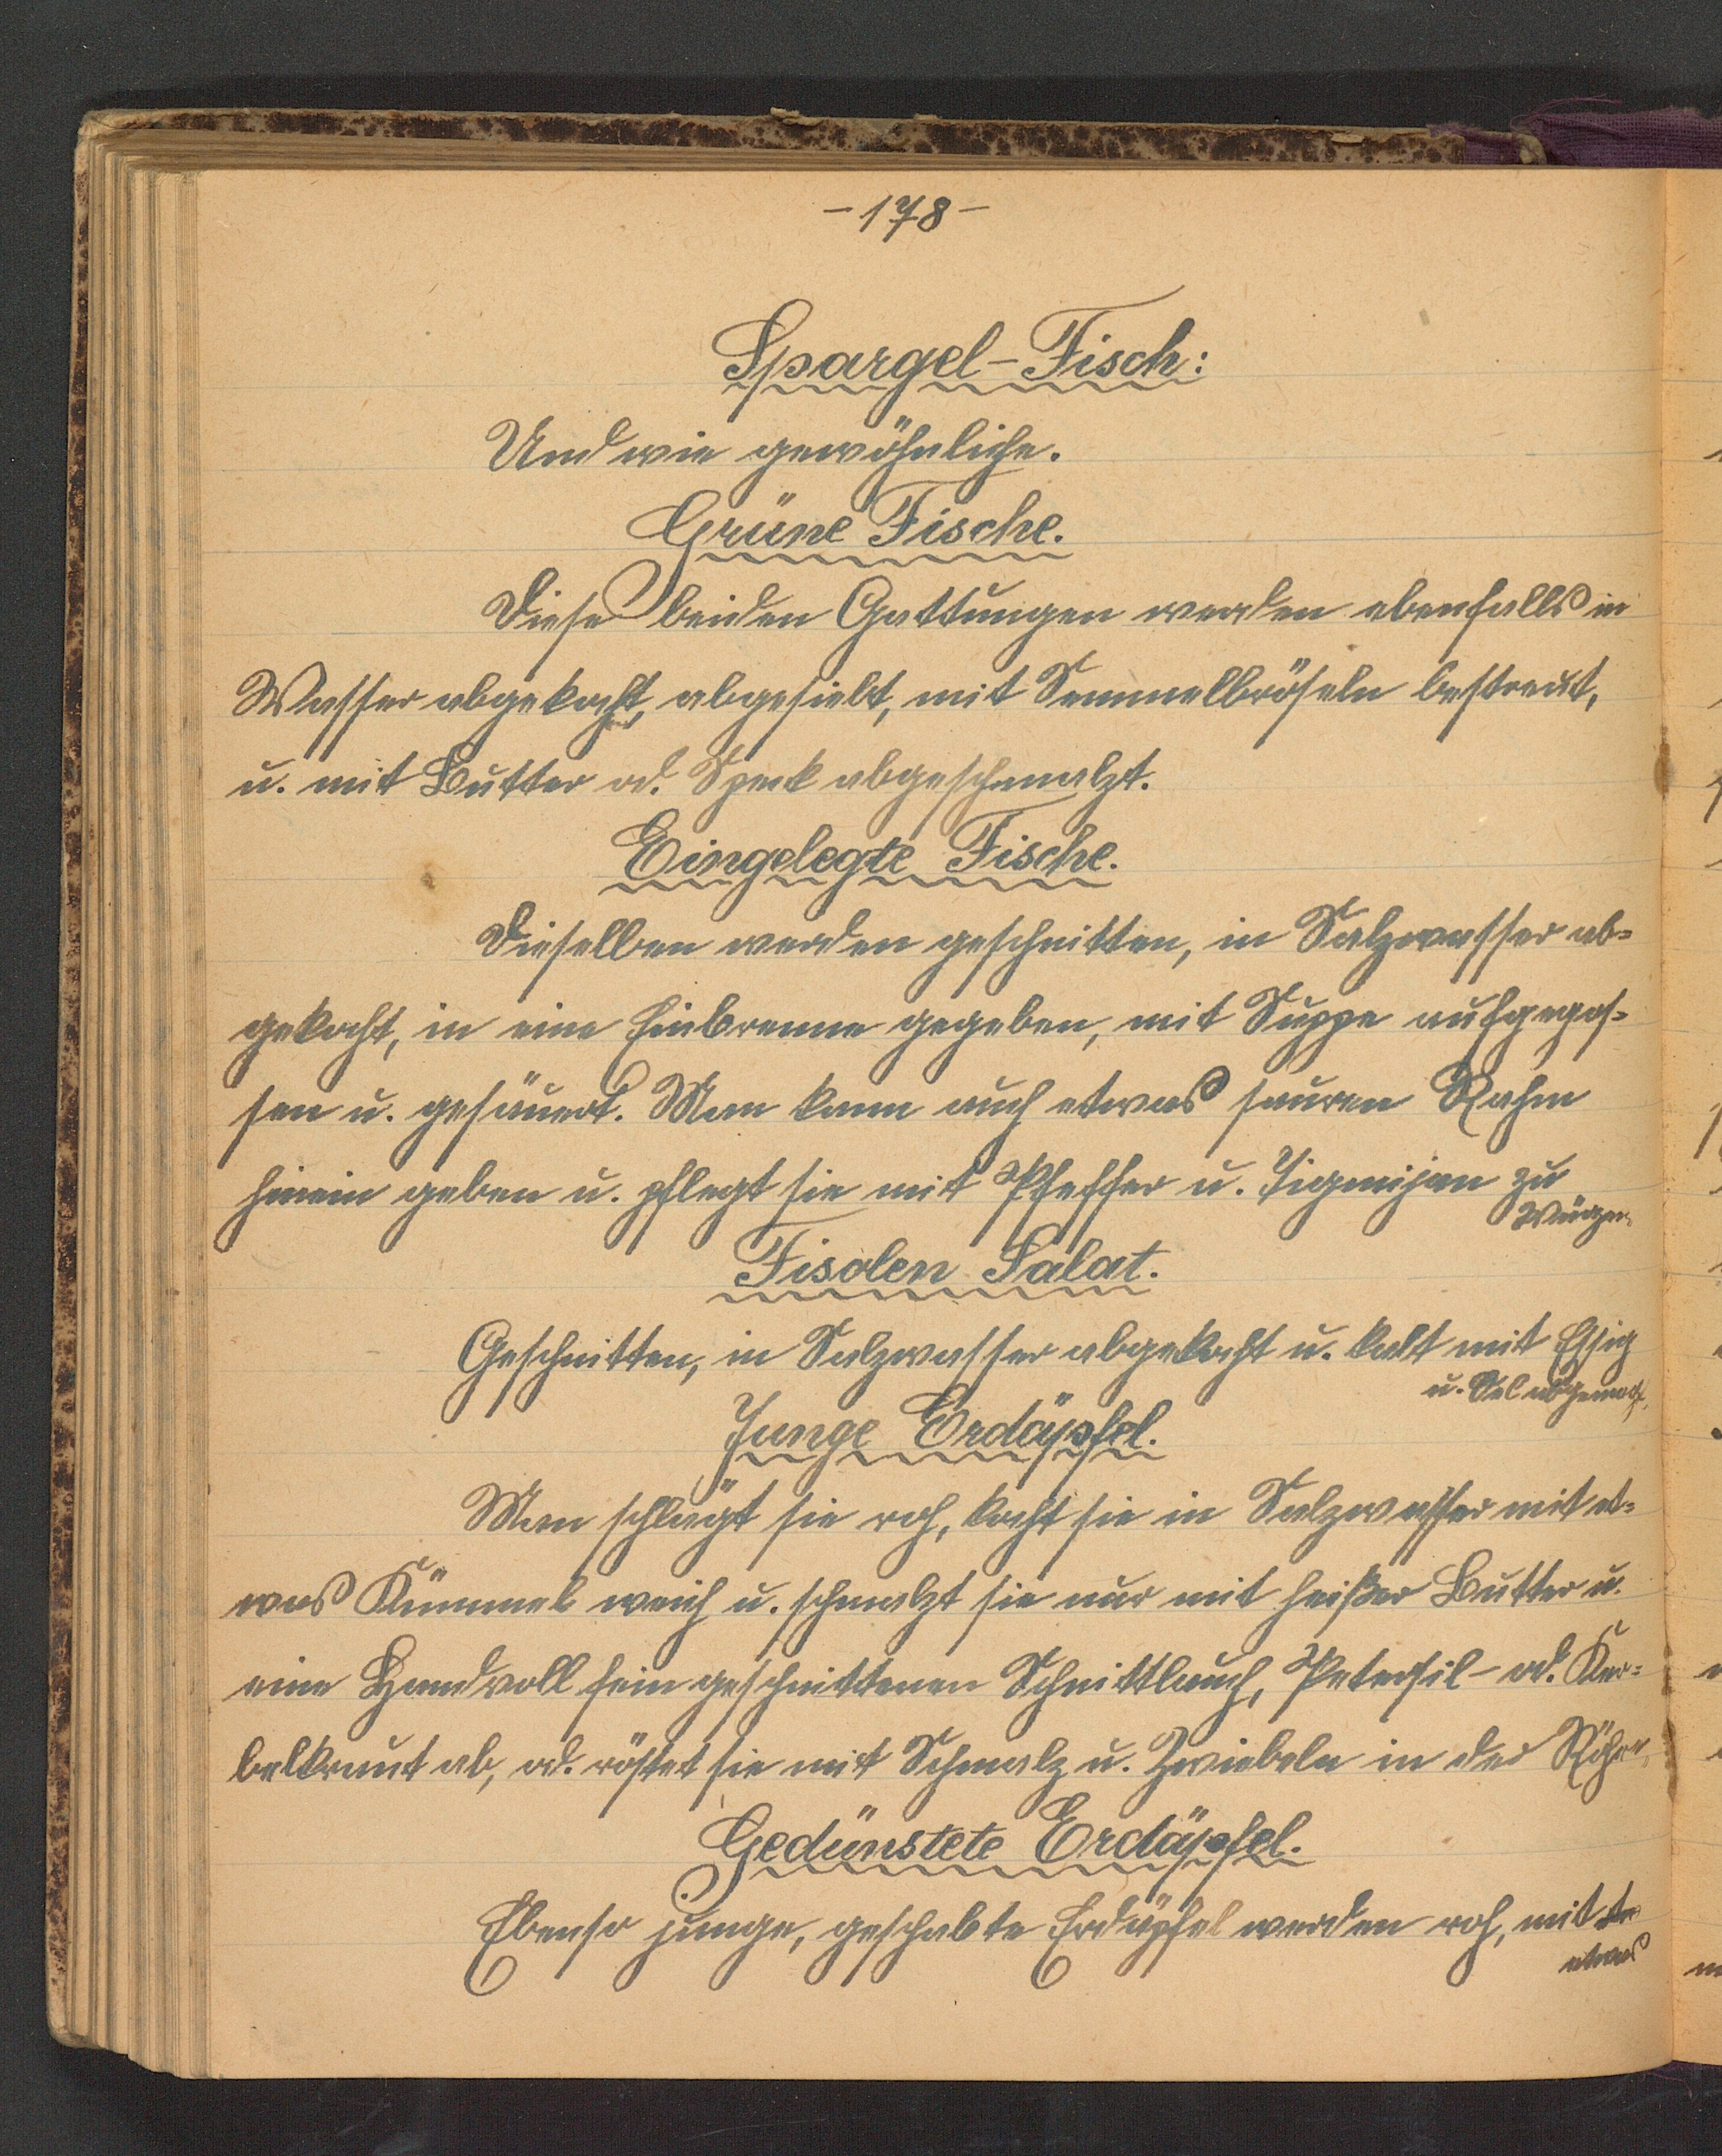 - 178 -
Spargel-Fisch:
Und wie gewöhnliche.
Grüne Fische.
Diese beiden Gattungen werden ebenfalls in
Wasser abgekocht, abgesiebt, mit Semmelbröseln bestreut,
u. mit Butter od. Speck abgeschmalzt.
Eingelegte Fische.
Dieselben werden geschnitten, in Salzwasser ab=
gekocht, in eine Einbrenne gegeben, mit Suppe aufgegos=
sen u. gesäuert. Man kann auch etwas sauren Rahm
hinein geben u. pflegt sie mit Pfeffer u. Tigmijan zu
Würzen.
Fisolen Salat.
Geschnitten, in Salzwasser abgekocht u. kalt mit Essig
u. Oel abgemacht.
Junge Erdäpfel.
Man schlägt sie roh, kocht sie in Salzwasser mit et=
was Kümmel weich u. schmalzt sie nur mit heißer Butter u.
eine Handvoll fein geschnittenen Schnittlauch, Petersil- od. Ker=
belkraut ab, od. röstet sie mit Schmalz u. Zwiebeln in der Röhre.
Gedünstete Erdäpfel.
Ebenso junge, geschabte Erdäpfel werden roh, mit
etwas